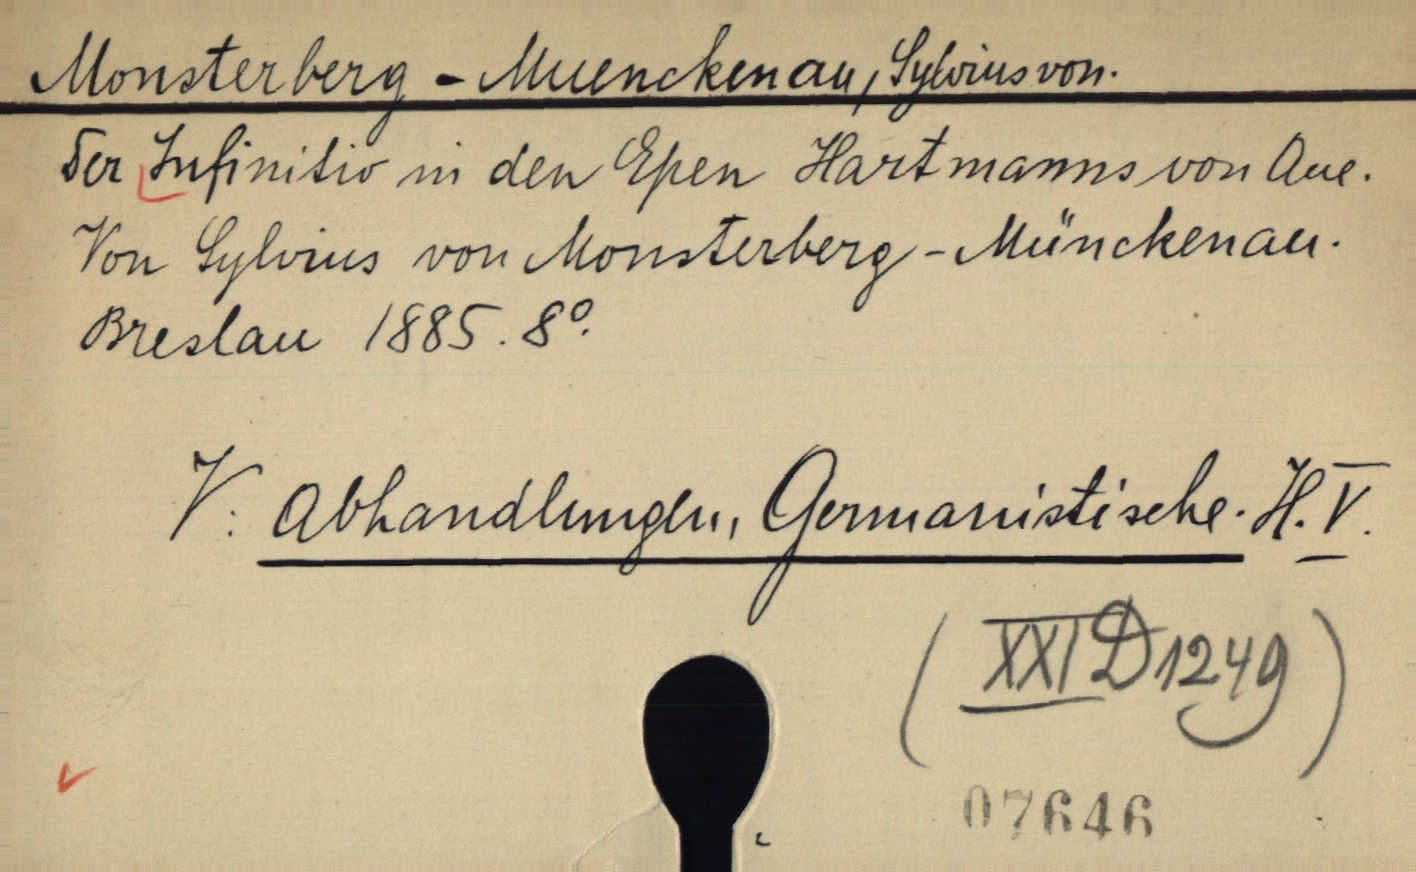 Monsterberg - Muenckenau, Sylvius von.
Der Infinitiv in den Epen Hartmanns von Aue.
Von Sylvius von Monsterberg - Münckenau.
Breslau 1885. 8º.
V: Abhandlungen, Germanistische. H. V.
(XXI D 1249)
07646